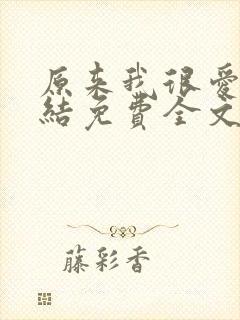 原来我很爱
結免費全文
藤彩香